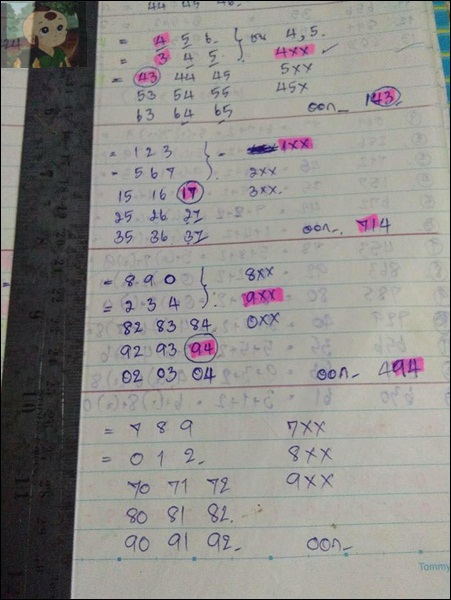 44 45 46.
= 4 5 6. } บน 4,5.
= 3 4 5. 4xx ✓
= 43 44 45 5xx
53 54 55 45x
63 64 65 ออก_ 143
= 1 2 3 } = 1xx
= 5 6 7 2xx
15 16 17 3xx.
25 26 27
35 36 37 ออก. 714
= 8 9 0 } 8xx
= 2 3 4 9xx
82 83 84 0xx
92 93 94
02 03 04 ออก_ 494
= 7 8 9 7xx
= 0 1 2_ 8xx
70 71 72 9xx
80 81 82.
90 91 92_ ออก_
Tommy